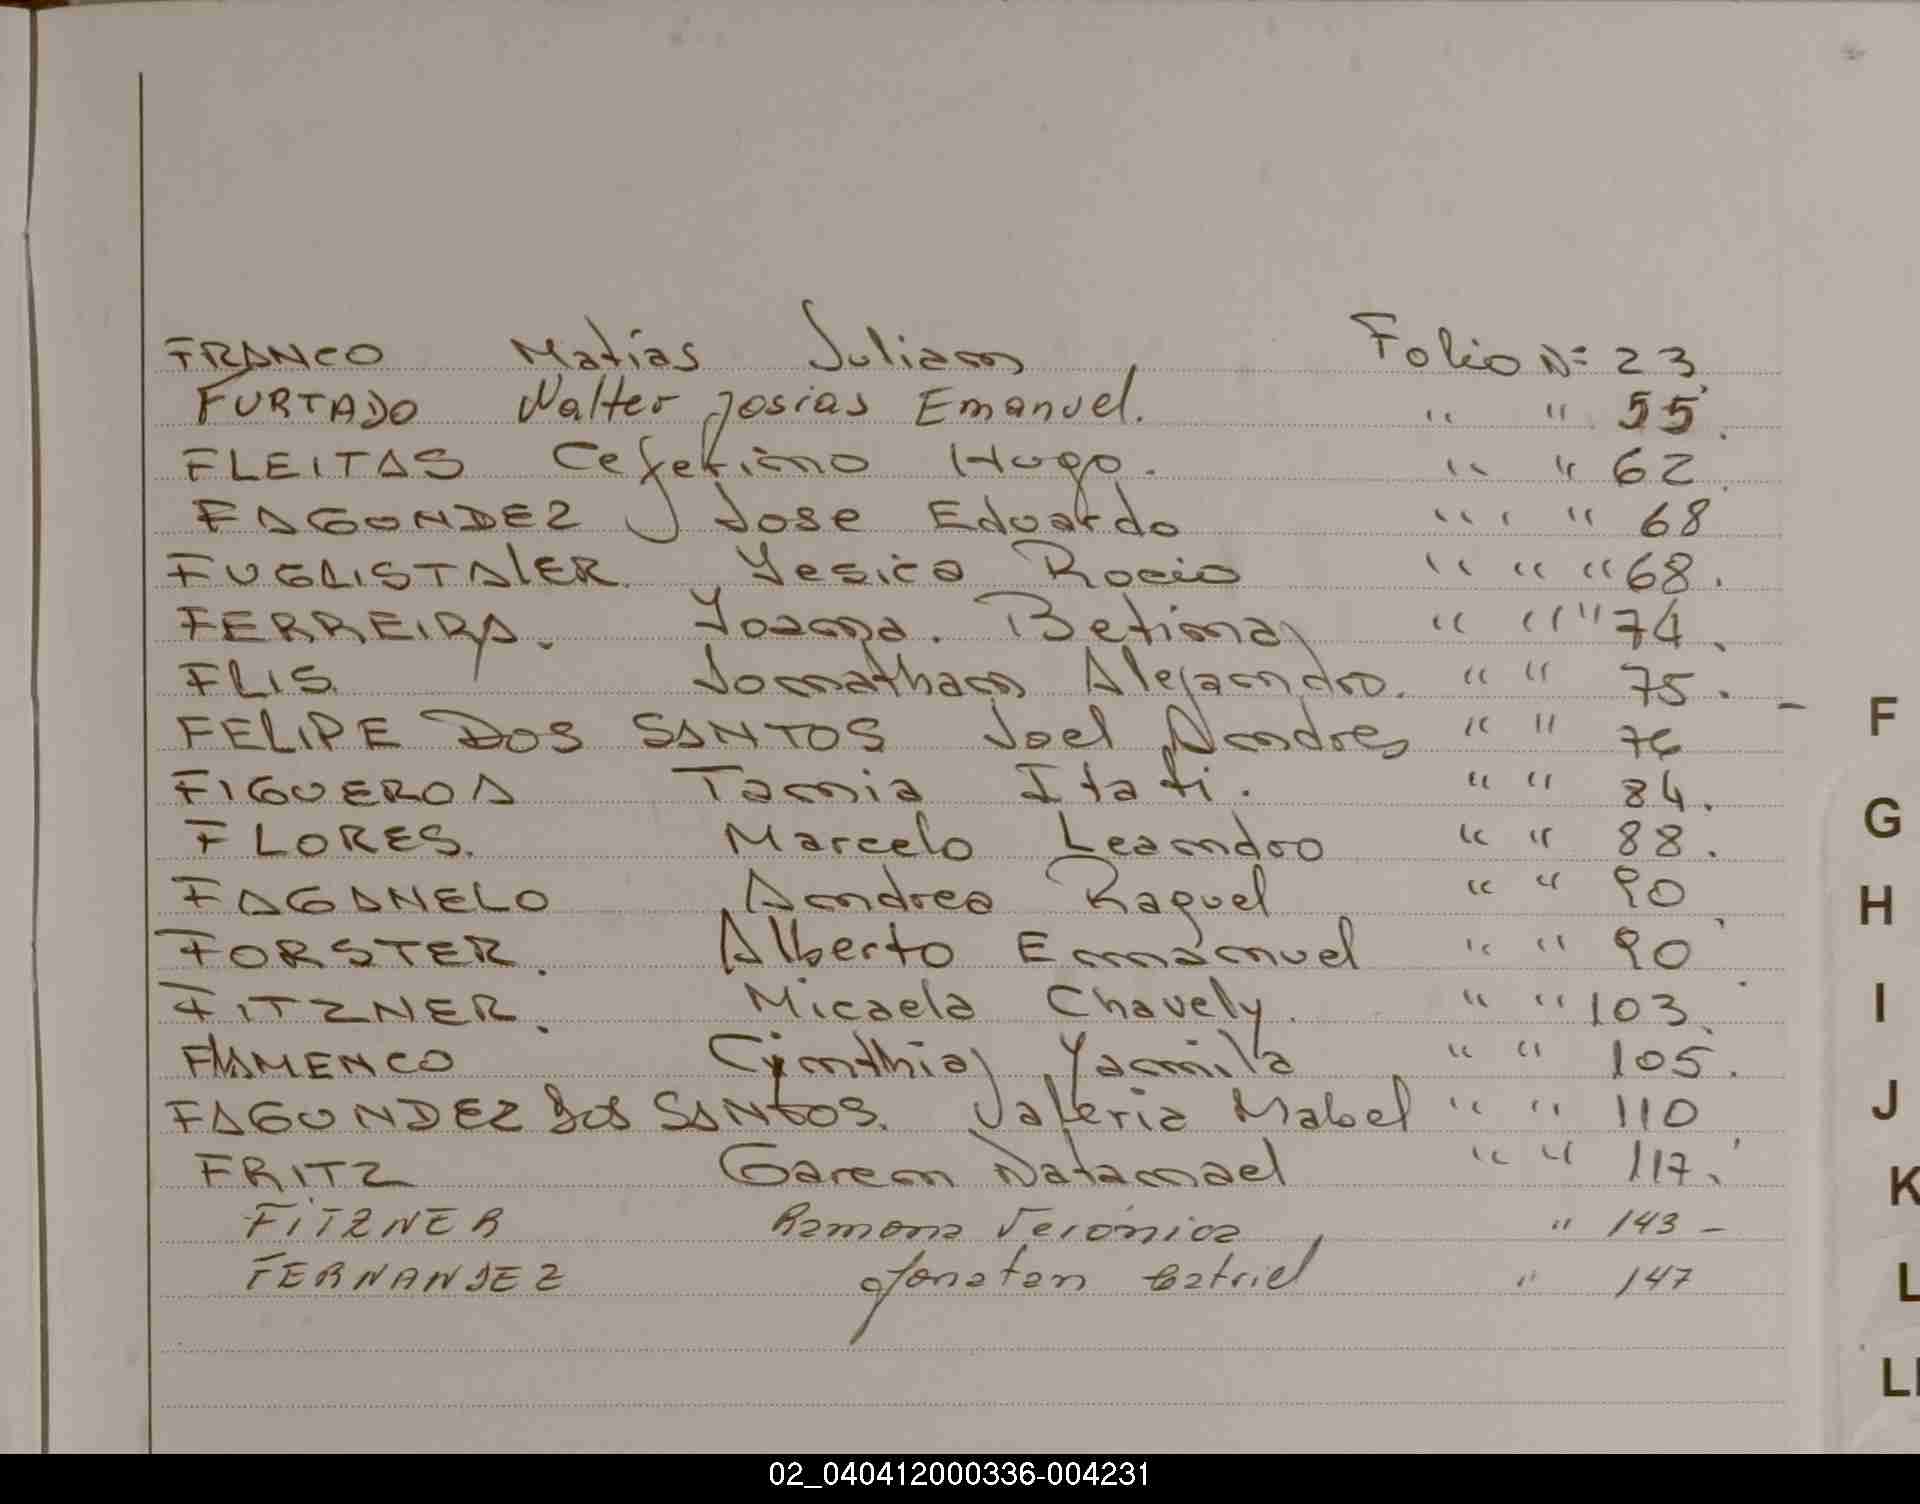 FRANCO Matías Julian Folio Nº 23
FURTADO Walter Josias Emanuel. " " 55.
FLEITAS Ceferino Hugo. " " 62.
FAGONDEZ Jose Eduardo " " 68
FUGLISTALER. Yesica Rocio " " " 68.
FERREIRA. Yoana. Betina " " " 74.
FLIS. Jonathan Alejandro. " " 75.
FELIPE DOS SANTOS Joel Andres " " 76
FIGUEROA Tania Itati. " " 84.
FLORES. Marcelo Leandro " " 88.
FAGANELO Andrea Raquel " " 90
FORSTER. Alberto Emanuel " " 90
FITZNER. Micaela Chavely. " " 103.
FLAMENCO Cynthia Yamila " " 105.
FAGUNDEZ DOS SANTOS. Valeria Mabel " " 110
FRITZ Garen Natanael " " 117.
FITZNER Ramona Verónica " 143 -
FERNANDEZ Jonatan Catriel " 147
F
G
H
I
J
K
L
LL
02_040412000336-004231